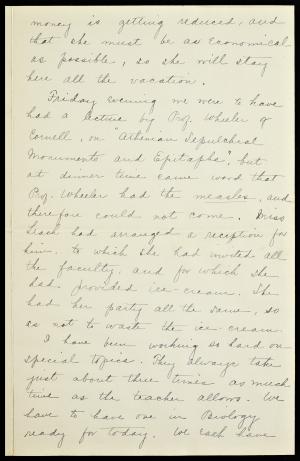 money is getting reduced, and
that she must be as economical
as possible, so she will stay
here all the vacation.
Friday evening we were to have
had a lecture by Prof. Wheeler of
Cornell, on "Athenian Sepulchral
Monuments and Epitaphs", but
at dinner time came word that
Prof. Wheeler had the measles, and
therefore could not come. Miss
Leach had arranged a reception for
him, to which she had invited all
the faculty, and for which she
had provided ice-cream. She
had her party all the same, so
as not to waste the ice-cream.
I have been working so hard on
special topics. They always take
just about three times as much
time as the teacher allows. We
have to have one in Biology
ready for today. We each have